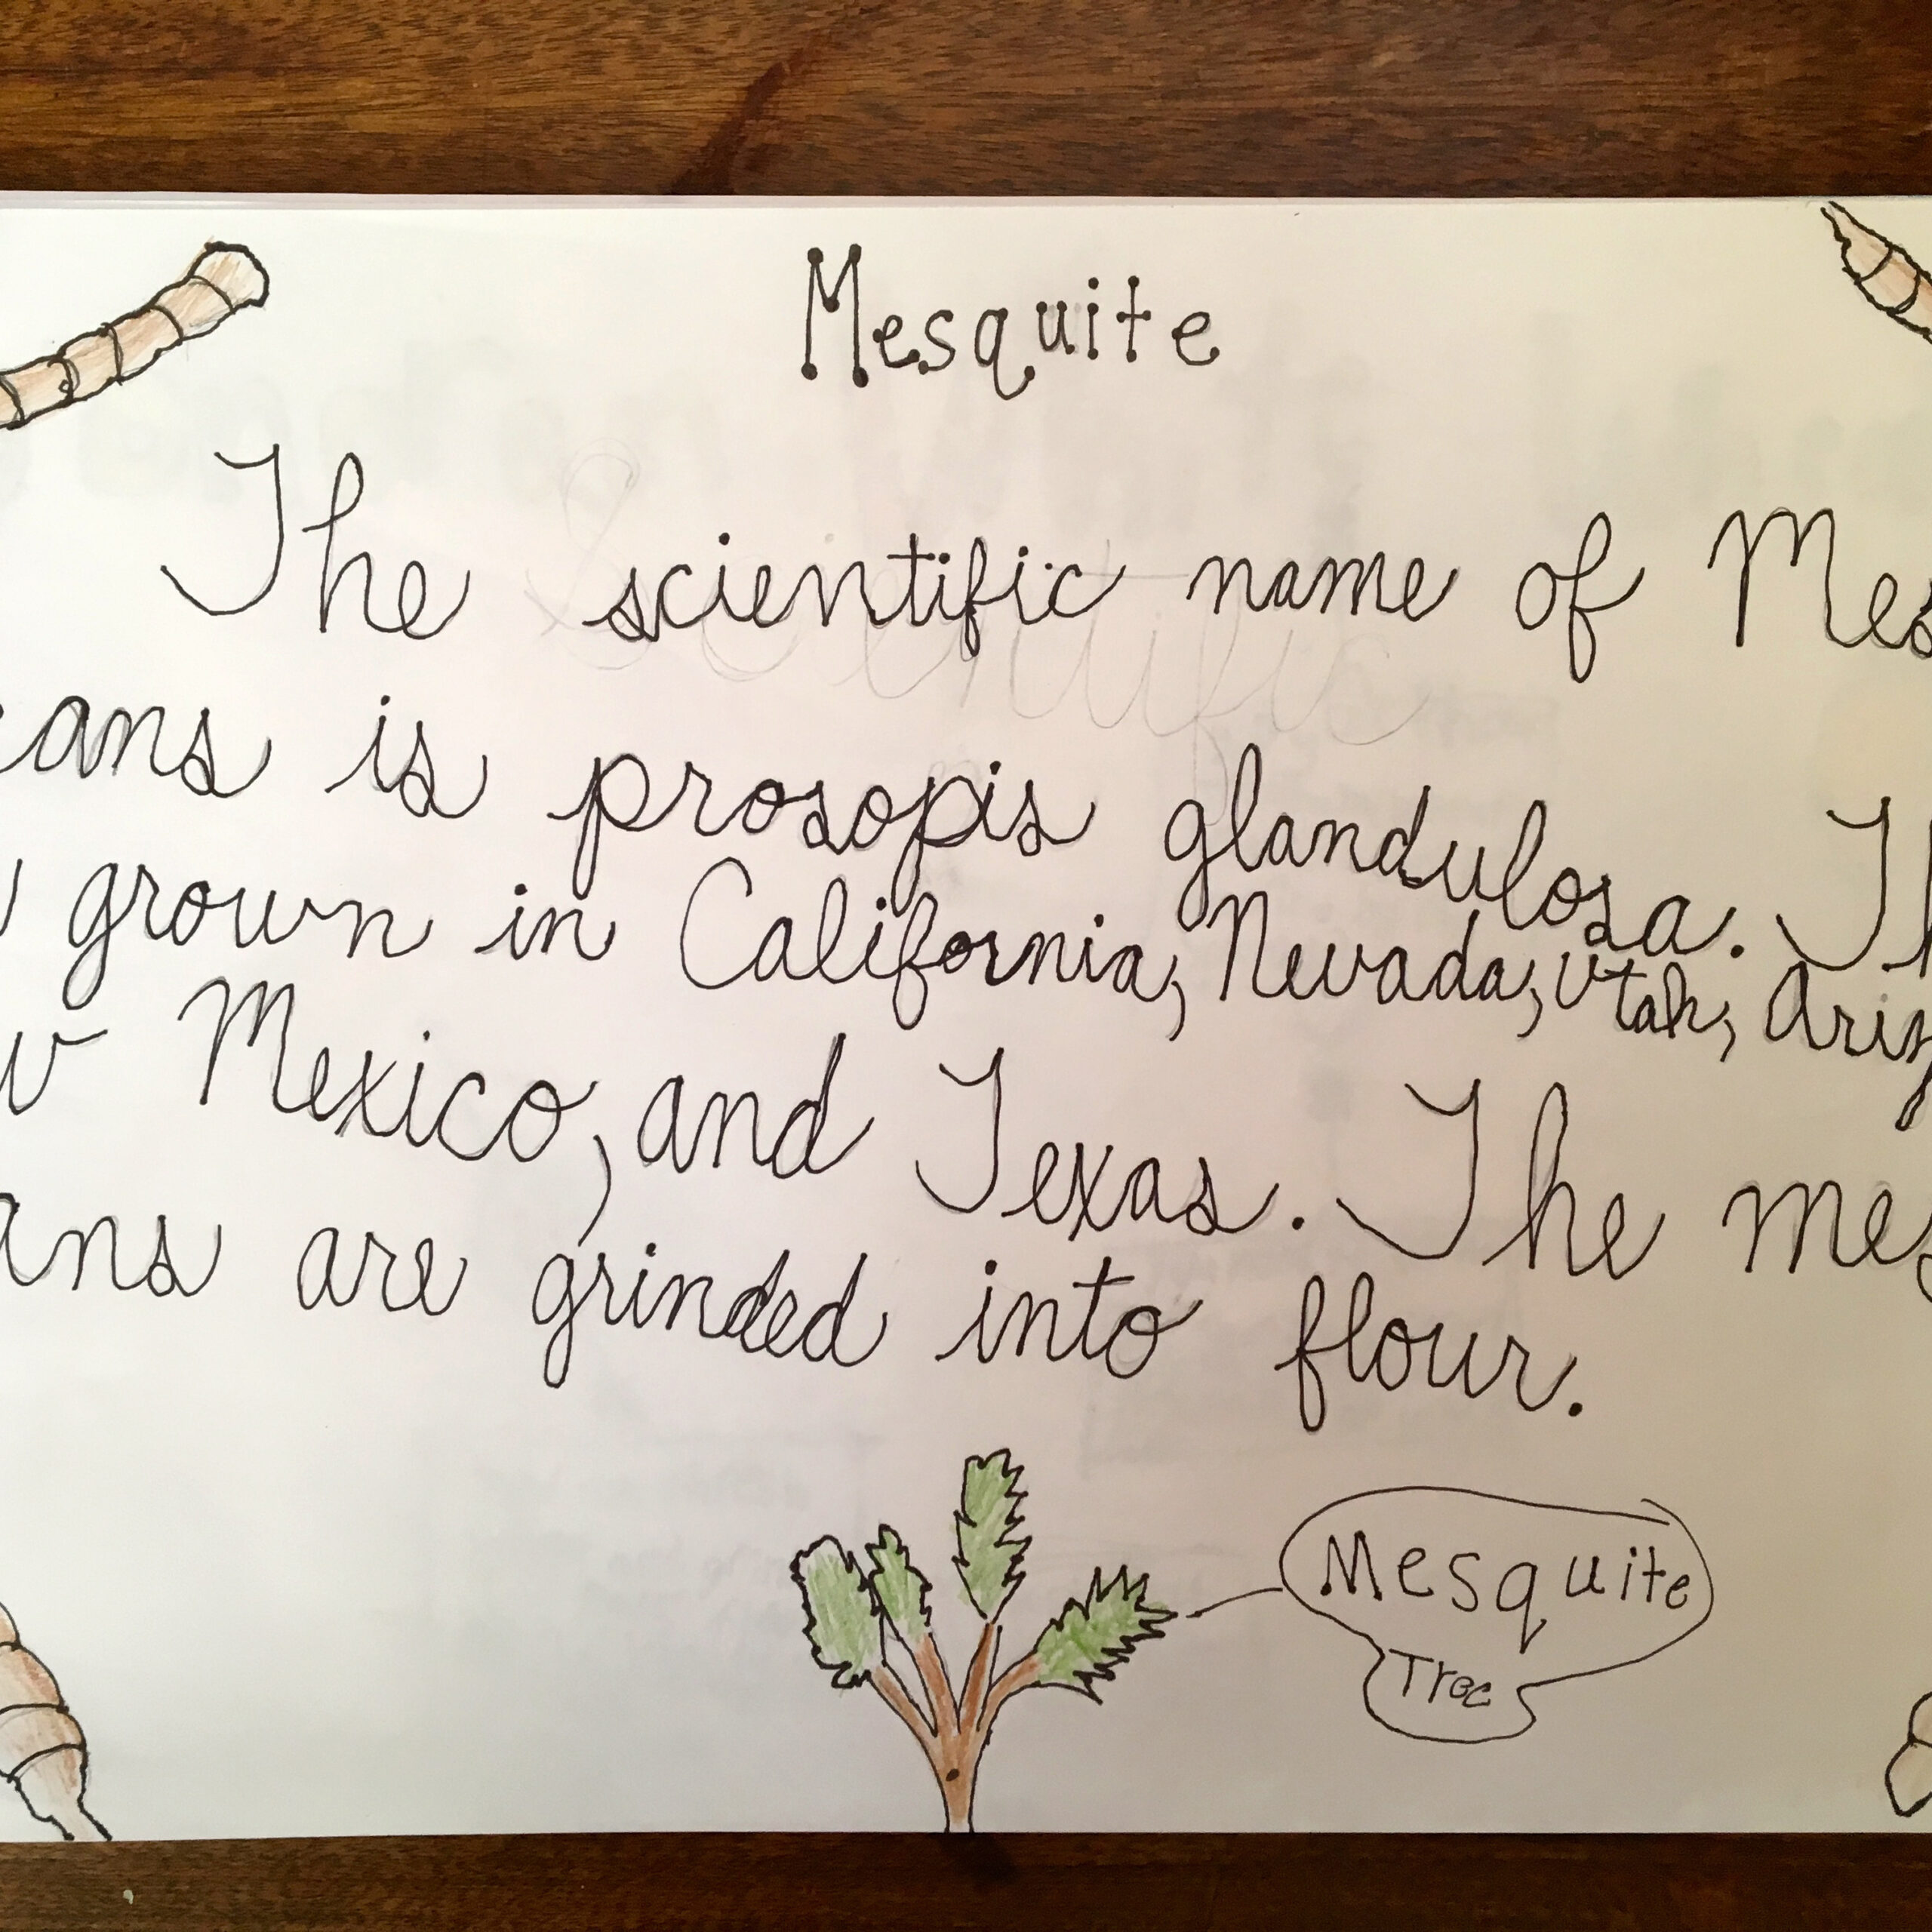 Mesquite
The scientific name of Mes
eans is prosopis glandulosa. Th
grown in California, Nevada, Utah, Ariz
w Mexico, and Texas. The mes
ans are grinded into flour.
Mesquite
Tree